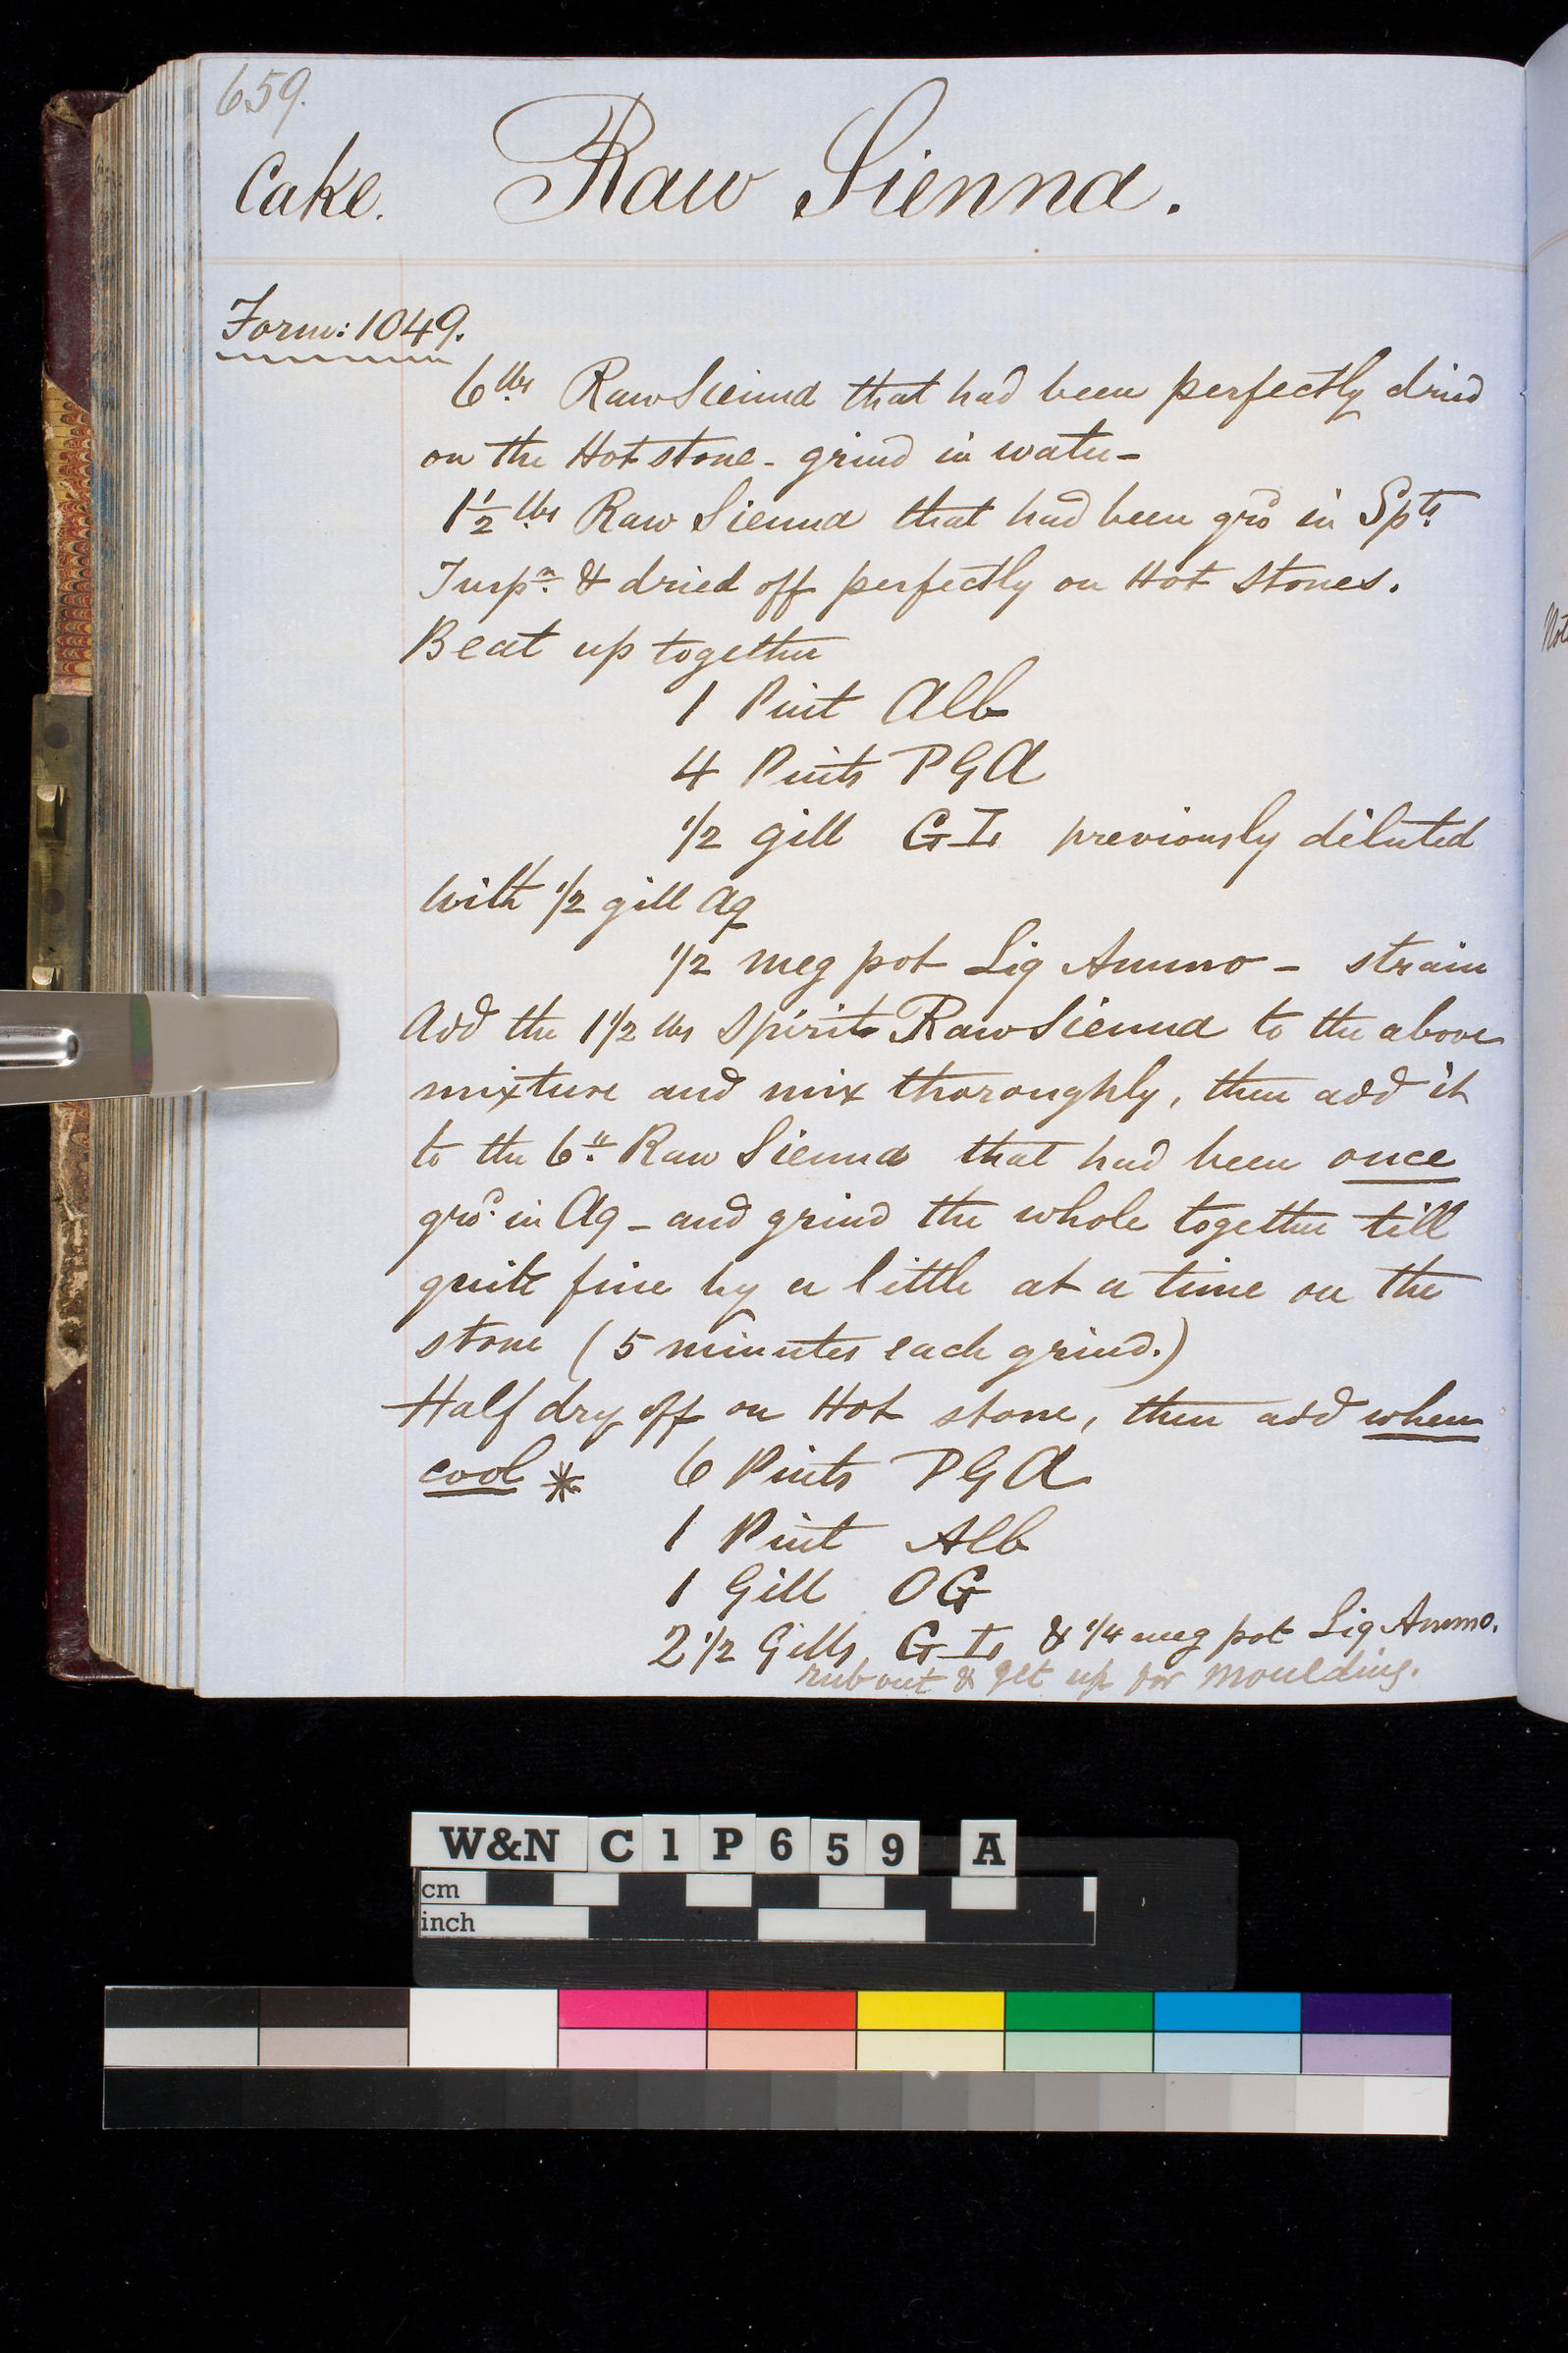 659.
Cake. Raw Sienna.
Form: 1049.
6 lbs Raw Sienna that had been perfectly dried
on the Hot stone - grind in water -
1 1/2 lbs Raw Sienna that had been gro'd in Spts
Turpn. & dried off perfectly on Hot Stones.
Beat up together
1 Pint Alb
4 Pints PGA
1/2 gill G I previously diluted
with 1/2 gill Aq
1/2 meg pot Liq Ammo - strain
Add the 1 1/2 lbs Spirits Raw Sienna to the above
mixture and mix thoroughly, then add it
to the 6 lb. Raw Sienna that had been once
gro'd. in Aq - and grind the whole together till
quite fine by a little at a time on the
stone (5 minutes each grind.)
Half dry off on Hot stone, then add when
cool * 6 Pints PGA
1 Pint Alb
1 Gill OG
2 1/2 Gills G I & 1/4 meg pot Liq Ammo.
rub out & get up for moulding.
Not
W&N C 1 P 6 5 9 A
cm
inch